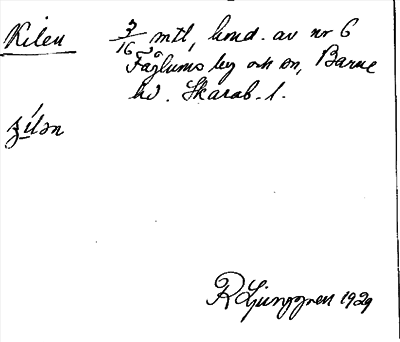 Kilen 3/16 mtl, hmd. av nr 6
Fåglums by och sn, Barne
hd. Skarab. l.
çílən
R Ljunggren 1929